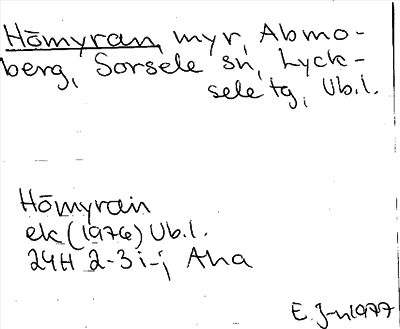 Hōmyran, myr, Abmo-
berg, Sorsele sn, Lyck-
sele tg, Vb.l.
Hōmyran
ek (1976) Vb.l.
24H 2-3 i-j Aha
E. J-n 1977